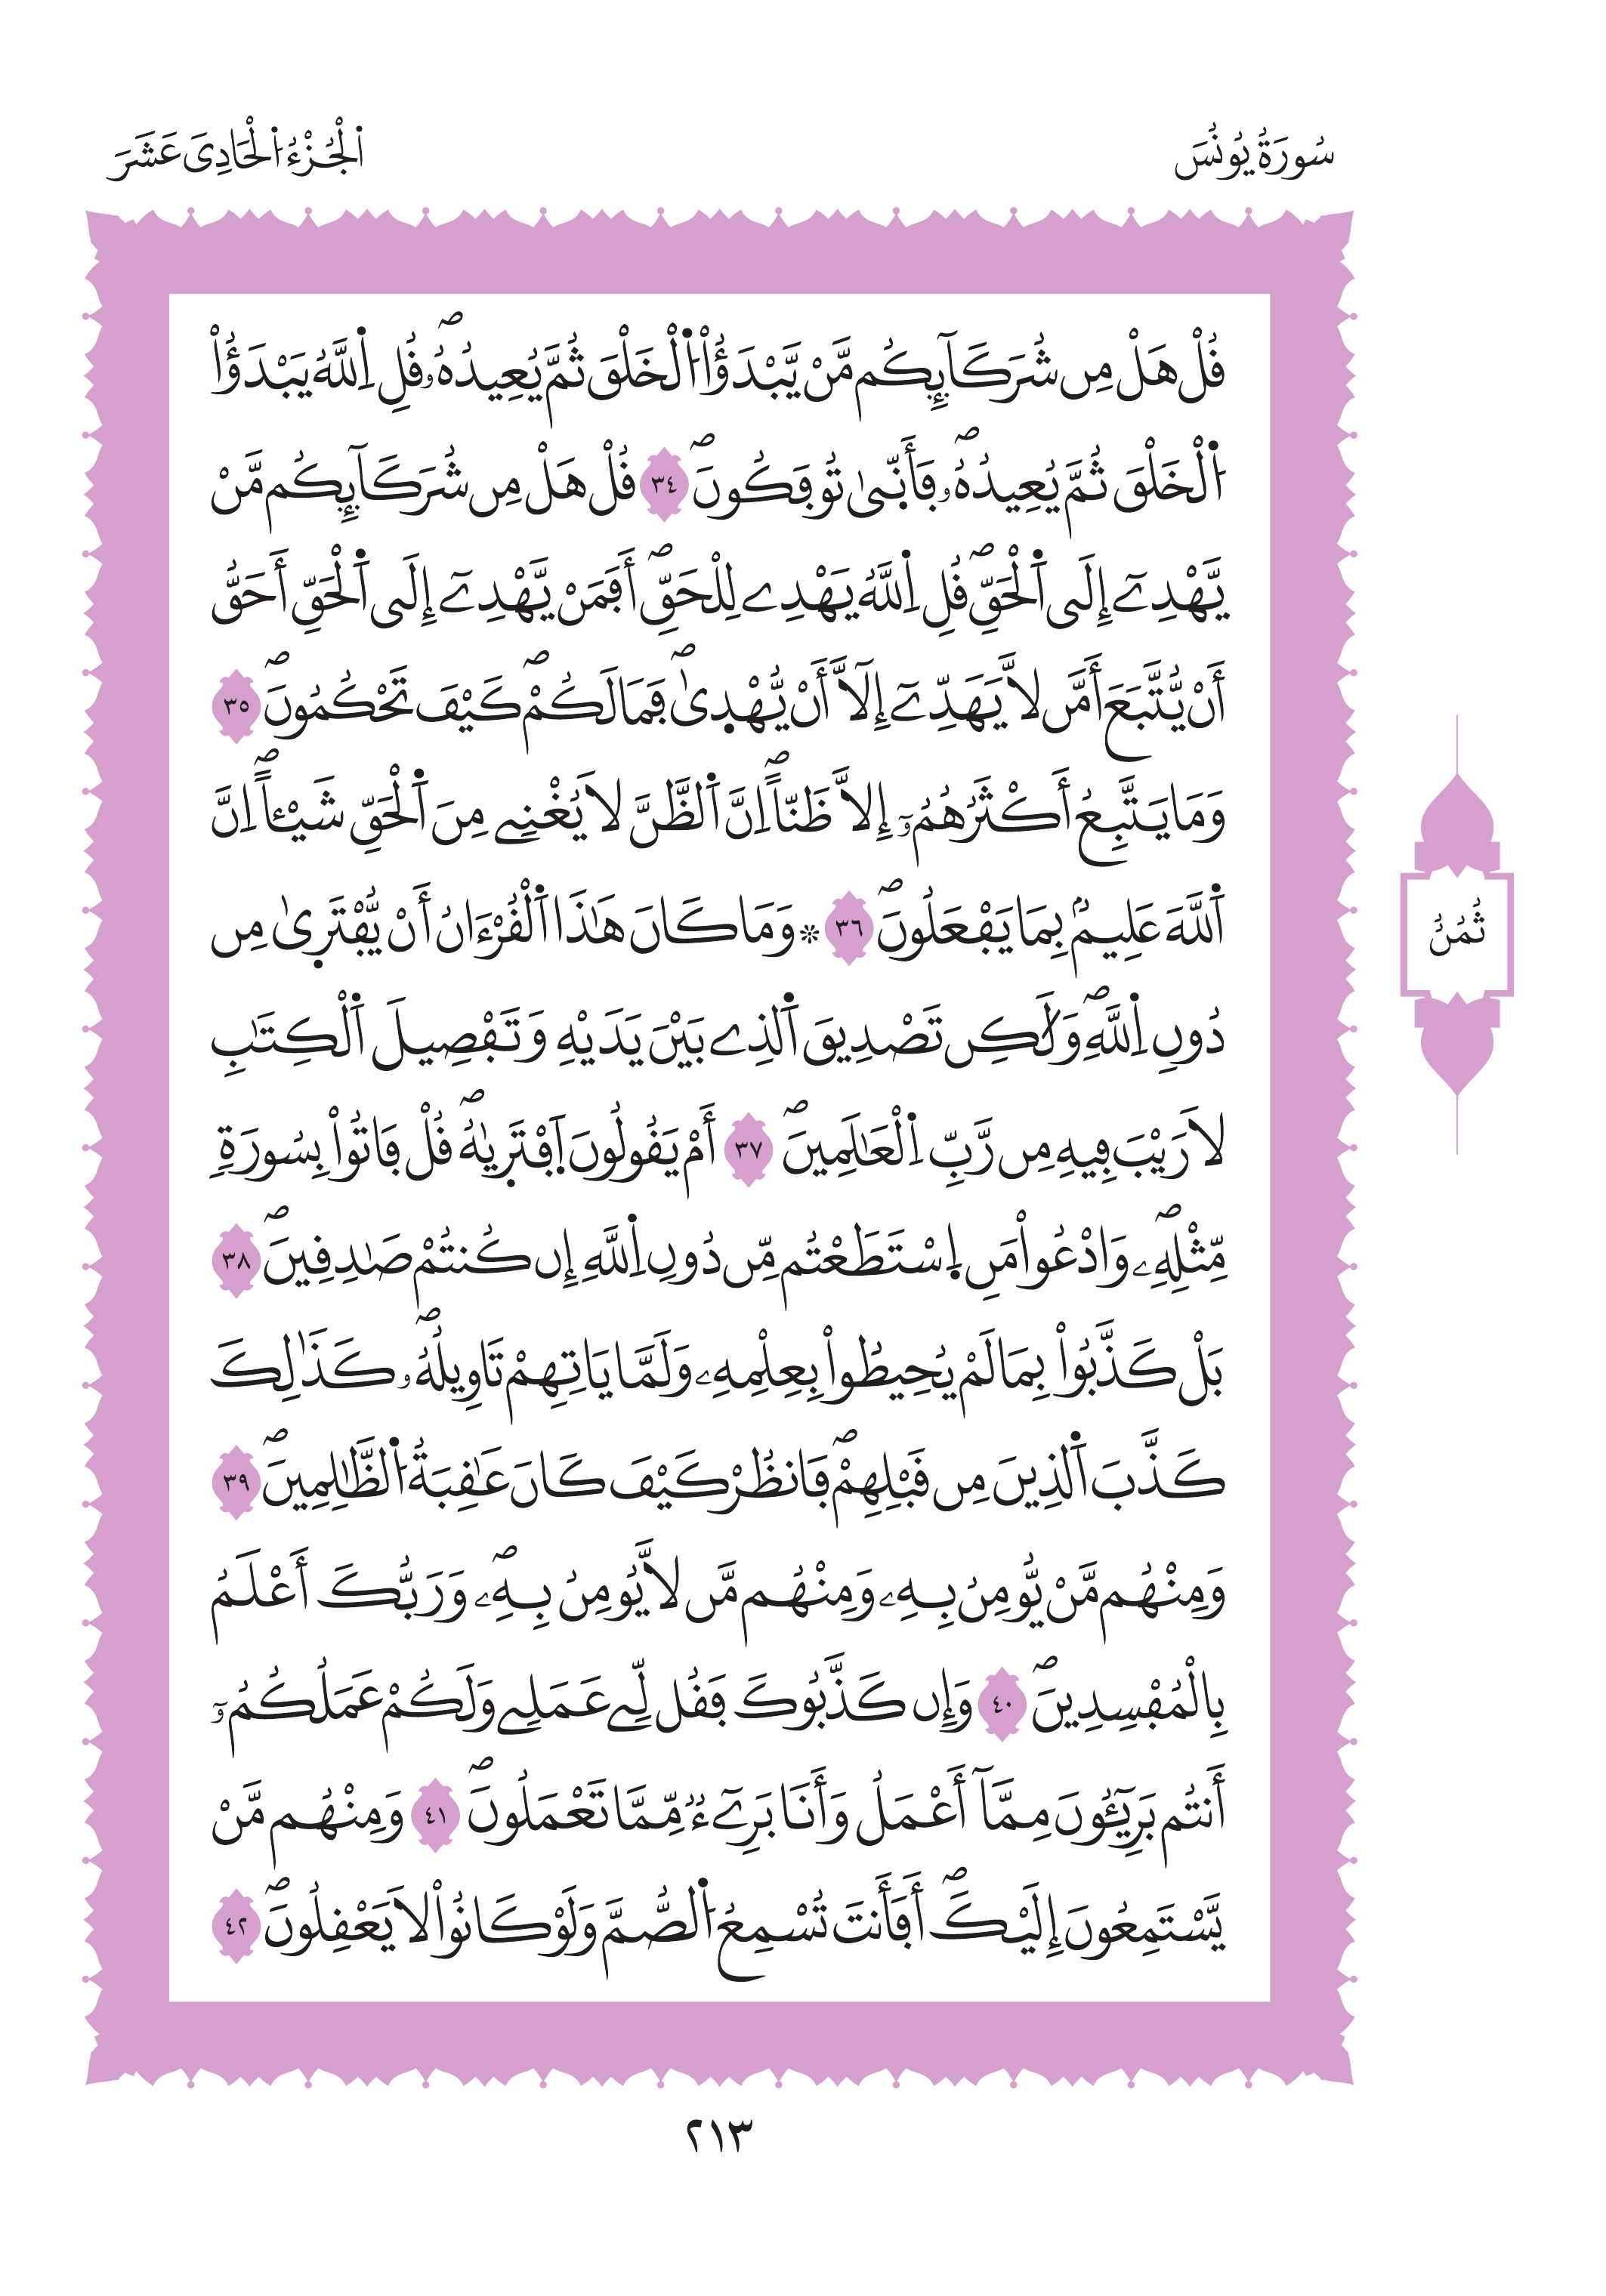 سُورَةُ يُونُسَ
اَ۬لْجُزْءُ اُ۬لْحَادِيَ عَشَرَ
قُلْ هَلْ مِن شُرَكَآئِكُم مَّنْ يَّبْدَؤُاْ اُ۬لْخَلْقَ ثُمَّ يُعِيدُهُۥۖ قُلِ اِ۬للَّهُ يَبْدَؤُاْ
اُ۬لْخَلْقَ ثُمَّ يُعِيدُهُۥۖ فَأَنّ۪يٰ تُوفَكُونَۖ ٣٤ قُلْ هَلْ مِن شُرَكَآئِكُم مَّنْ
يَّهْدِےٓ إِلَي اَ۬لْحَقِّۖ قُلِ اِ۬للَّهُ يَهْدِے لِلْحَقِّۖ أَفَمَنْ يَّهْدِےٓ إِلَي اَ۬لْحَقِّ أَحَقُّ
أَنْ يُّتَّبَعَ أَمَّن لَّا يَهَدِّےٓ إِلَّآ أَنْ يُّهْد۪يٰۖ فَمَا لَكُمْۖ كَيْفَ تَحْكُمُونَۖ ٣٥
وَمَا يَتَّبِعُ أَكْثَرُهُمُۥٓ إِلَّا ظَنّاًۖ اِنَّ اَ۬لظَّنَّ لَا يُغْنِے مِنَ اَ۬لْحَقِّ شَيْـٔاًۖ اِنَّ
اَ۬للَّهَ عَلِيمُۢ بِمَا يَفْعَلُونَۖ ٣٦ ۞ وَمَا كَانَ هَٰذَا اَ۬لْقُرْءَانُ أَنْ يُّفْتَر۪يٰ مِن
دُونِ اِ۬للَّهِۖ وَلَٰكِن تَصْدِيقَ اَ۬لذِے بَيْنَ يَدَيْهِ وَتَفْصِيلَ اَ۬لْكِتَٰبِ
لَا رَيْبَ فِيهِ مِن رَّبِّ اِ۬لْعَٰلَمِينَۖ ٣٧ أَمْ يَقُولُونَ اَ۪فْتَر۪يٰهُۖ قُلْ فَاتُواْ بِسُورَةٖ
مِّثْلِهِۦۖ وَادْعُواْ مَنِ اِ۪سْتَطَعْتُم مِّن دُونِ اِ۬للَّهِ إِن كُنتُمْ صَٰدِقِينَۖ ٣٨
بَلْ كَذَّبُواْ بِمَا لَمْ يُحِيطُواْ بِعِلْمِهِۦ وَلَمَّا يَاتِهِمْ تَاوِيلُهُۥۖ كَذَٰلِكَ
كَذَّبَ اَ۬لذِينَ مِن قَبْلِهِمْۖ فَانظُرْ كَيْفَ كَانَ عَٰقِبَةُ اُ۬لظَّٰلِمِينَۖ ٣٩
وَمِنْهُم مَّنْ يُّومِنُ بِهِۦ وَمِنْهُم مَّن لَّا يُومِنُ بِهِۦۖ وَرَبُّكَ أَعْلَمُ
بِالْمُفْسِدِينَۖ ٤٠ وَإِن كَذَّبُوكَ فَقُل لِّے عَمَلِے وَلَكُمْ عَمَلُكُمُۥٓ
أَنتُم بَرِيٓـُٔونَ مِمَّآ أَعْمَلُ وَأَنَا بَرِےٓءٞ مِّمَّا تَعْمَلُونَۖ ٤١ وَمِنْهُم مَّنْ
يَّسْتَمِعُونَ إِلَيْكَۖ أَفَأَنتَ تُسْمِعُ اُ۬لصُّمَّ وَلَوْ كَانُواْ لَا يَعْقِلُونَۖ ٤٢
ثُمُنُ
٢١٣